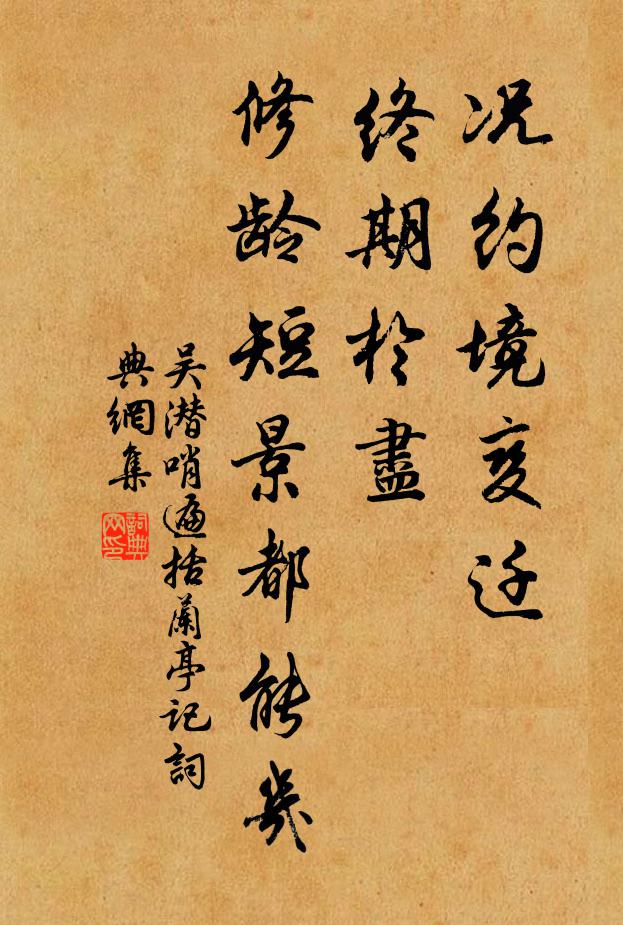 况约境变迁
终期於盡
修龄短景都能幾
吴潜哨遍括蘭亭记詞
典網集
詞典
网印